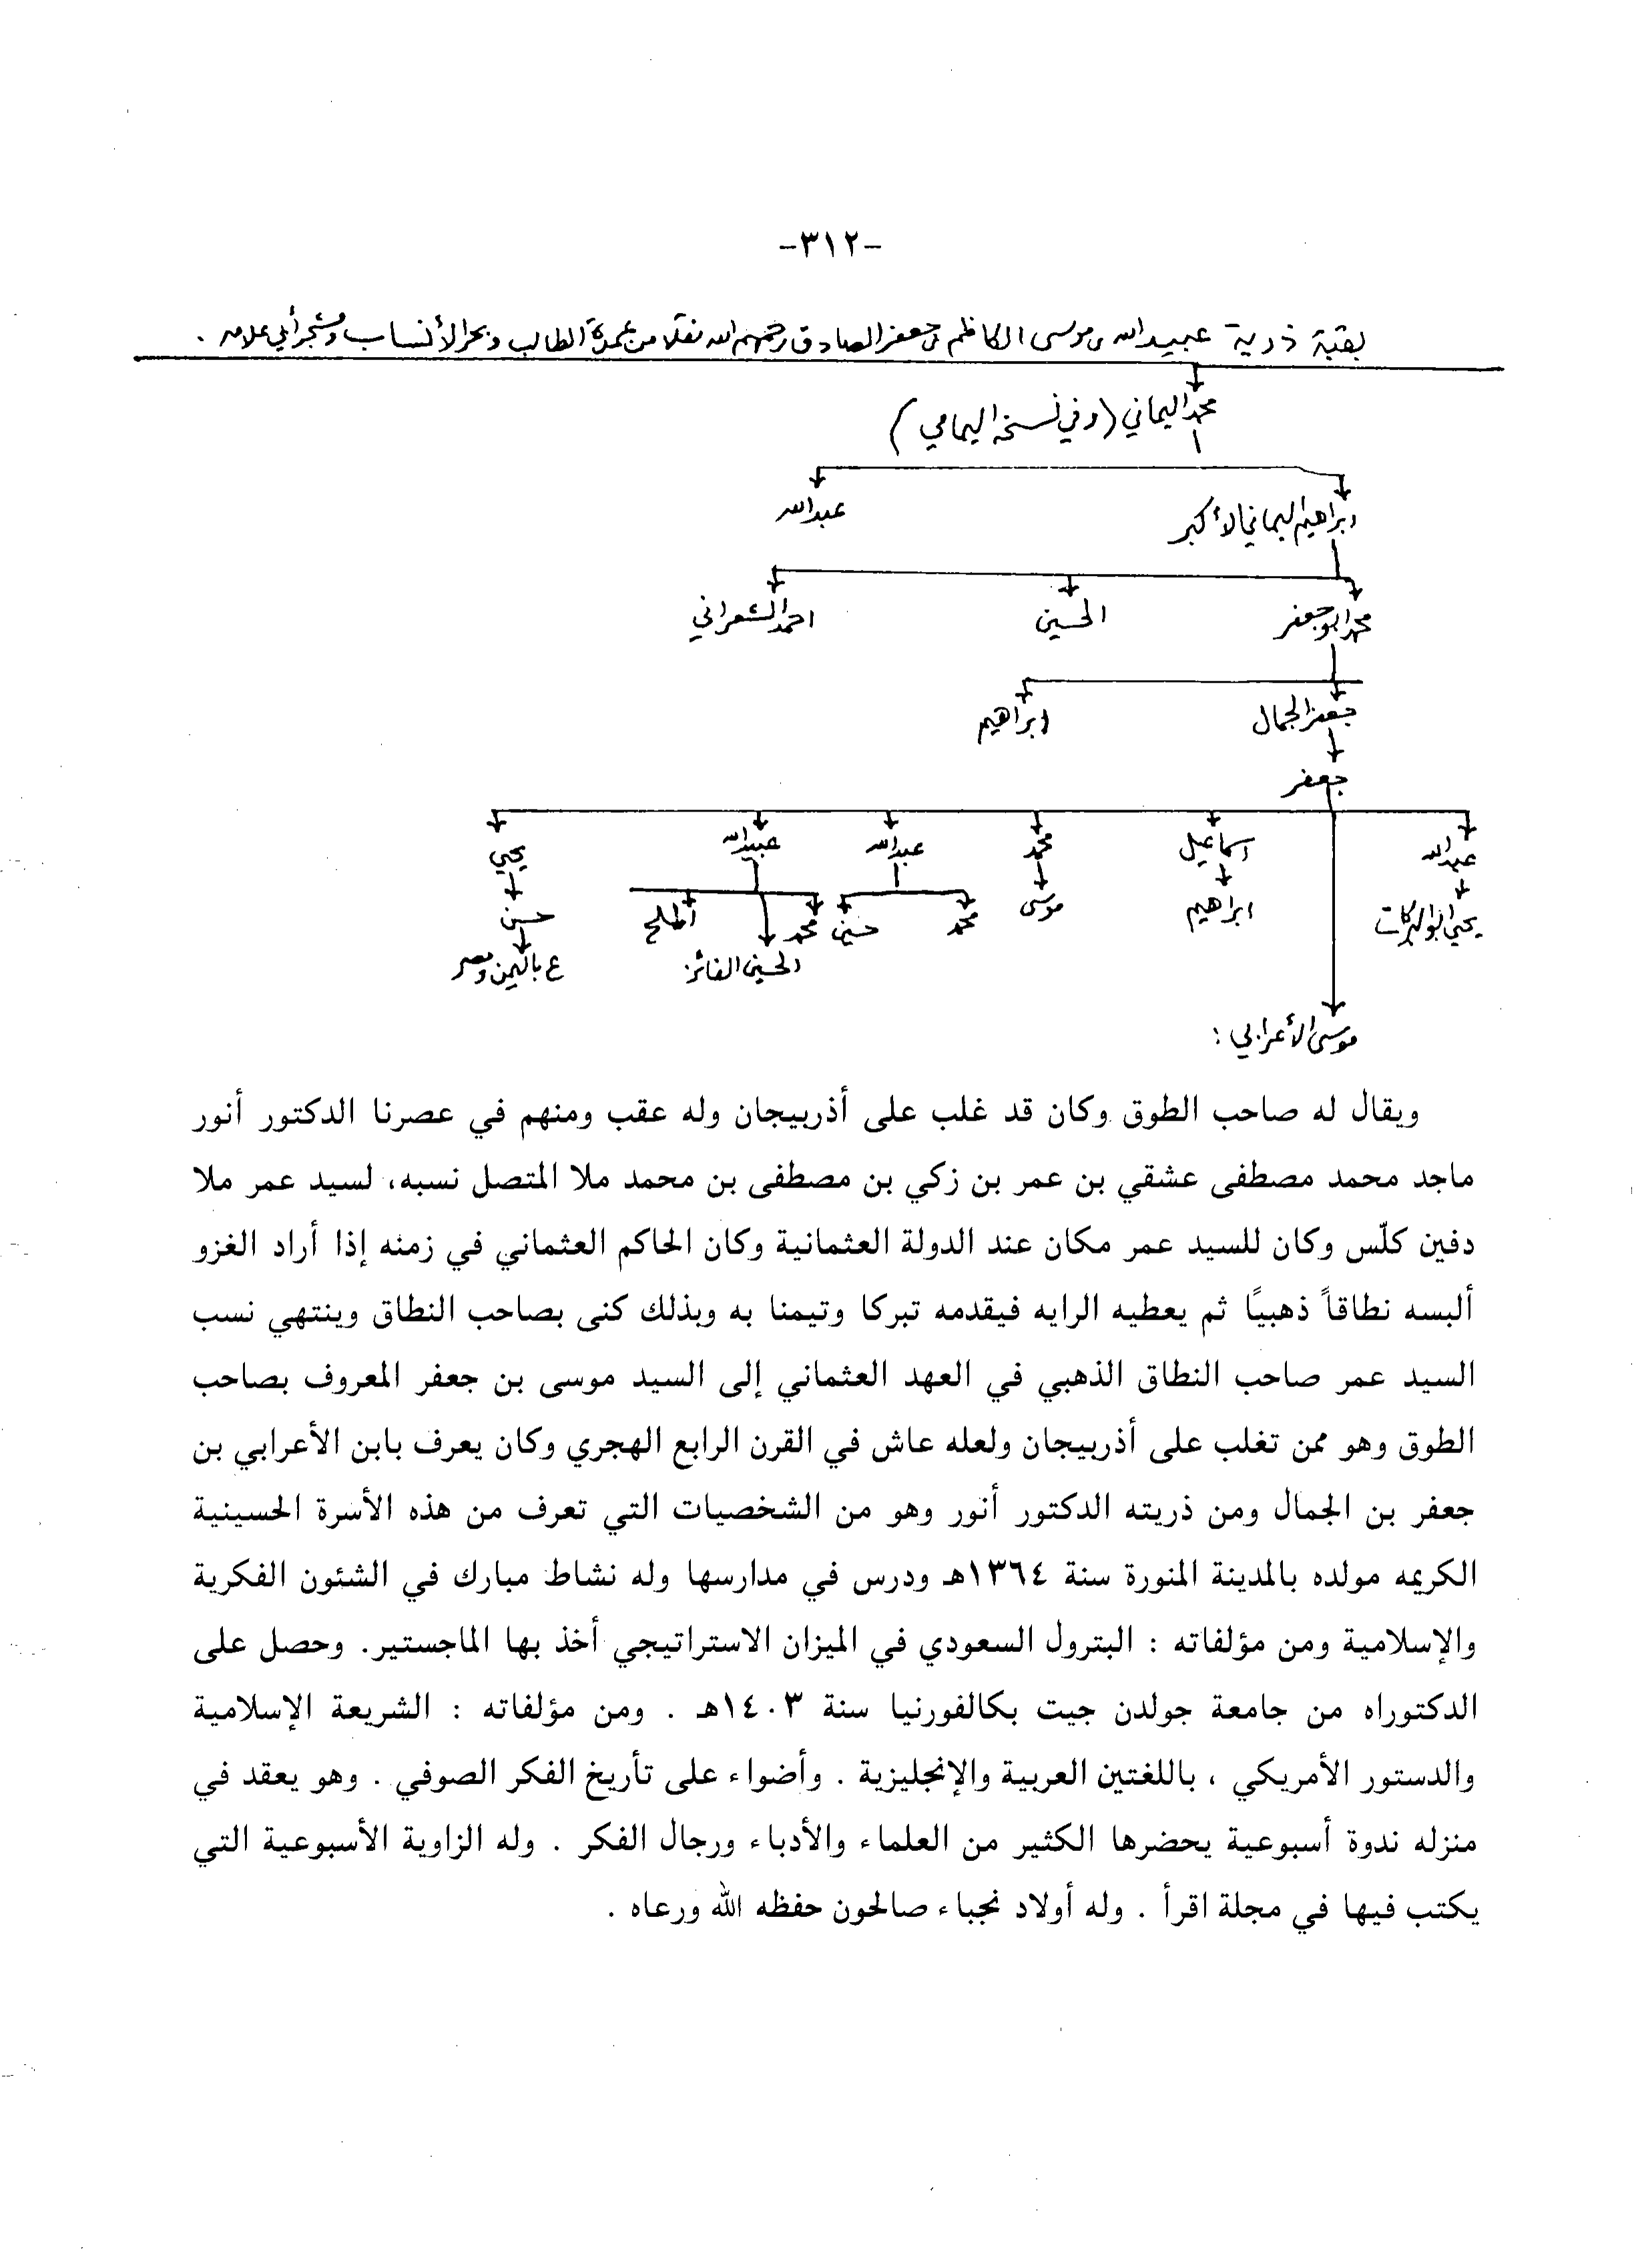 -٣١٢-
بقية ذرية عبيدالله بن موسى الكاظم بن جعفر الصادق رحمهم الله نقلا من عمدة الطالب وبحر الأنساب ومشجر أبي علامه .
محمد اليماني (وفي نسخه اليمامي)
ابراهيم اليماني الأكبر عبدالله
محمد ابو جعفر الحسين احمد الشعراني
جعفر الجمال ابراهيم
جعفر
عبدالله اسماعيل محمد عبدالله عبيدالله يحيى
يحيى ابو البركات ابراهيم موسى محمد حسين محمد حسن
الحسين الفائز ع باليمن ومصر
موسى الأعرابي :
ويقال له صاحب الطوق وكان قد غلب على أذربيجان وله عقب ومنهم في عصرنا الدكتور أنور
ماجد محمد مصطفى عشقي بن عمر بن زكي بن مصطفى بن محمد ملا المتصل نسبه، لسيد عمر ملا
دفين كلّس وكان للسيد عمر مكان عند الدولة العثمانية وكان الحاكم العثماني في زمنه إذا أراد الغزو
ألبسه نطاقاً ذهبيًا ثم يعطيه الرايه فيقدمه تبركا وتيمنا به وبذلك كنى بصاحب النطاق وينتهي نسب
السيد عمر صاحب النطاق الذهبي في العهد العثماني إلى السيد موسى بن جعفر المعروف بصاحب
الطوق وهو ممن تغلب على أذربيجان ولعله عاش في القرن الرابع الهجري وكان يعرف بابن الأعرابي بن
جعفر بن الجمال ومن ذريته الدكتور أنور وهو من الشخصيات التي تعرف من هذه الأسرة الحسينية
الكريمه مولده بالمدينة المنورة سنة ١٣٦٤هـ ودرس في مدارسها وله نشاط مبارك في الشئون الفكرية
والإسلامية ومن مؤلفاته : البترول السعودي في الميزان الاستراتيجي أخذ بها الماجستير. وحصل على
الدكتوراه من جامعة جولدن جيت بكالفورنيا سنة ١٤٠٣هـ . ومن مؤلفاته : الشريعة الإسلامية
والدستور الأمريكي ، باللغتين العربية والإنجليزية . وأضواء على تأريخ الفكر الصوفي . وهو يعقد في
منزله ندوة أسبوعية يحضرها الكثير من العلماء والأدباء ورجال الفكر . وله الزاوية الأسبوعية التي
يكتب فيها في مجلة اقرأ . وله أولاد نجباء صالحون حفظه الله ورعاه .